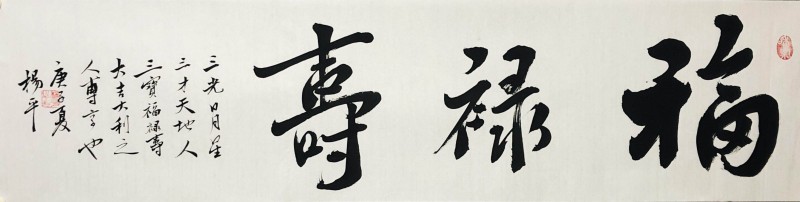 福禄壽
三光日月星
三才天地人
三寶福禄壽
大吉大利之
人專享也
庚子夏
楊平